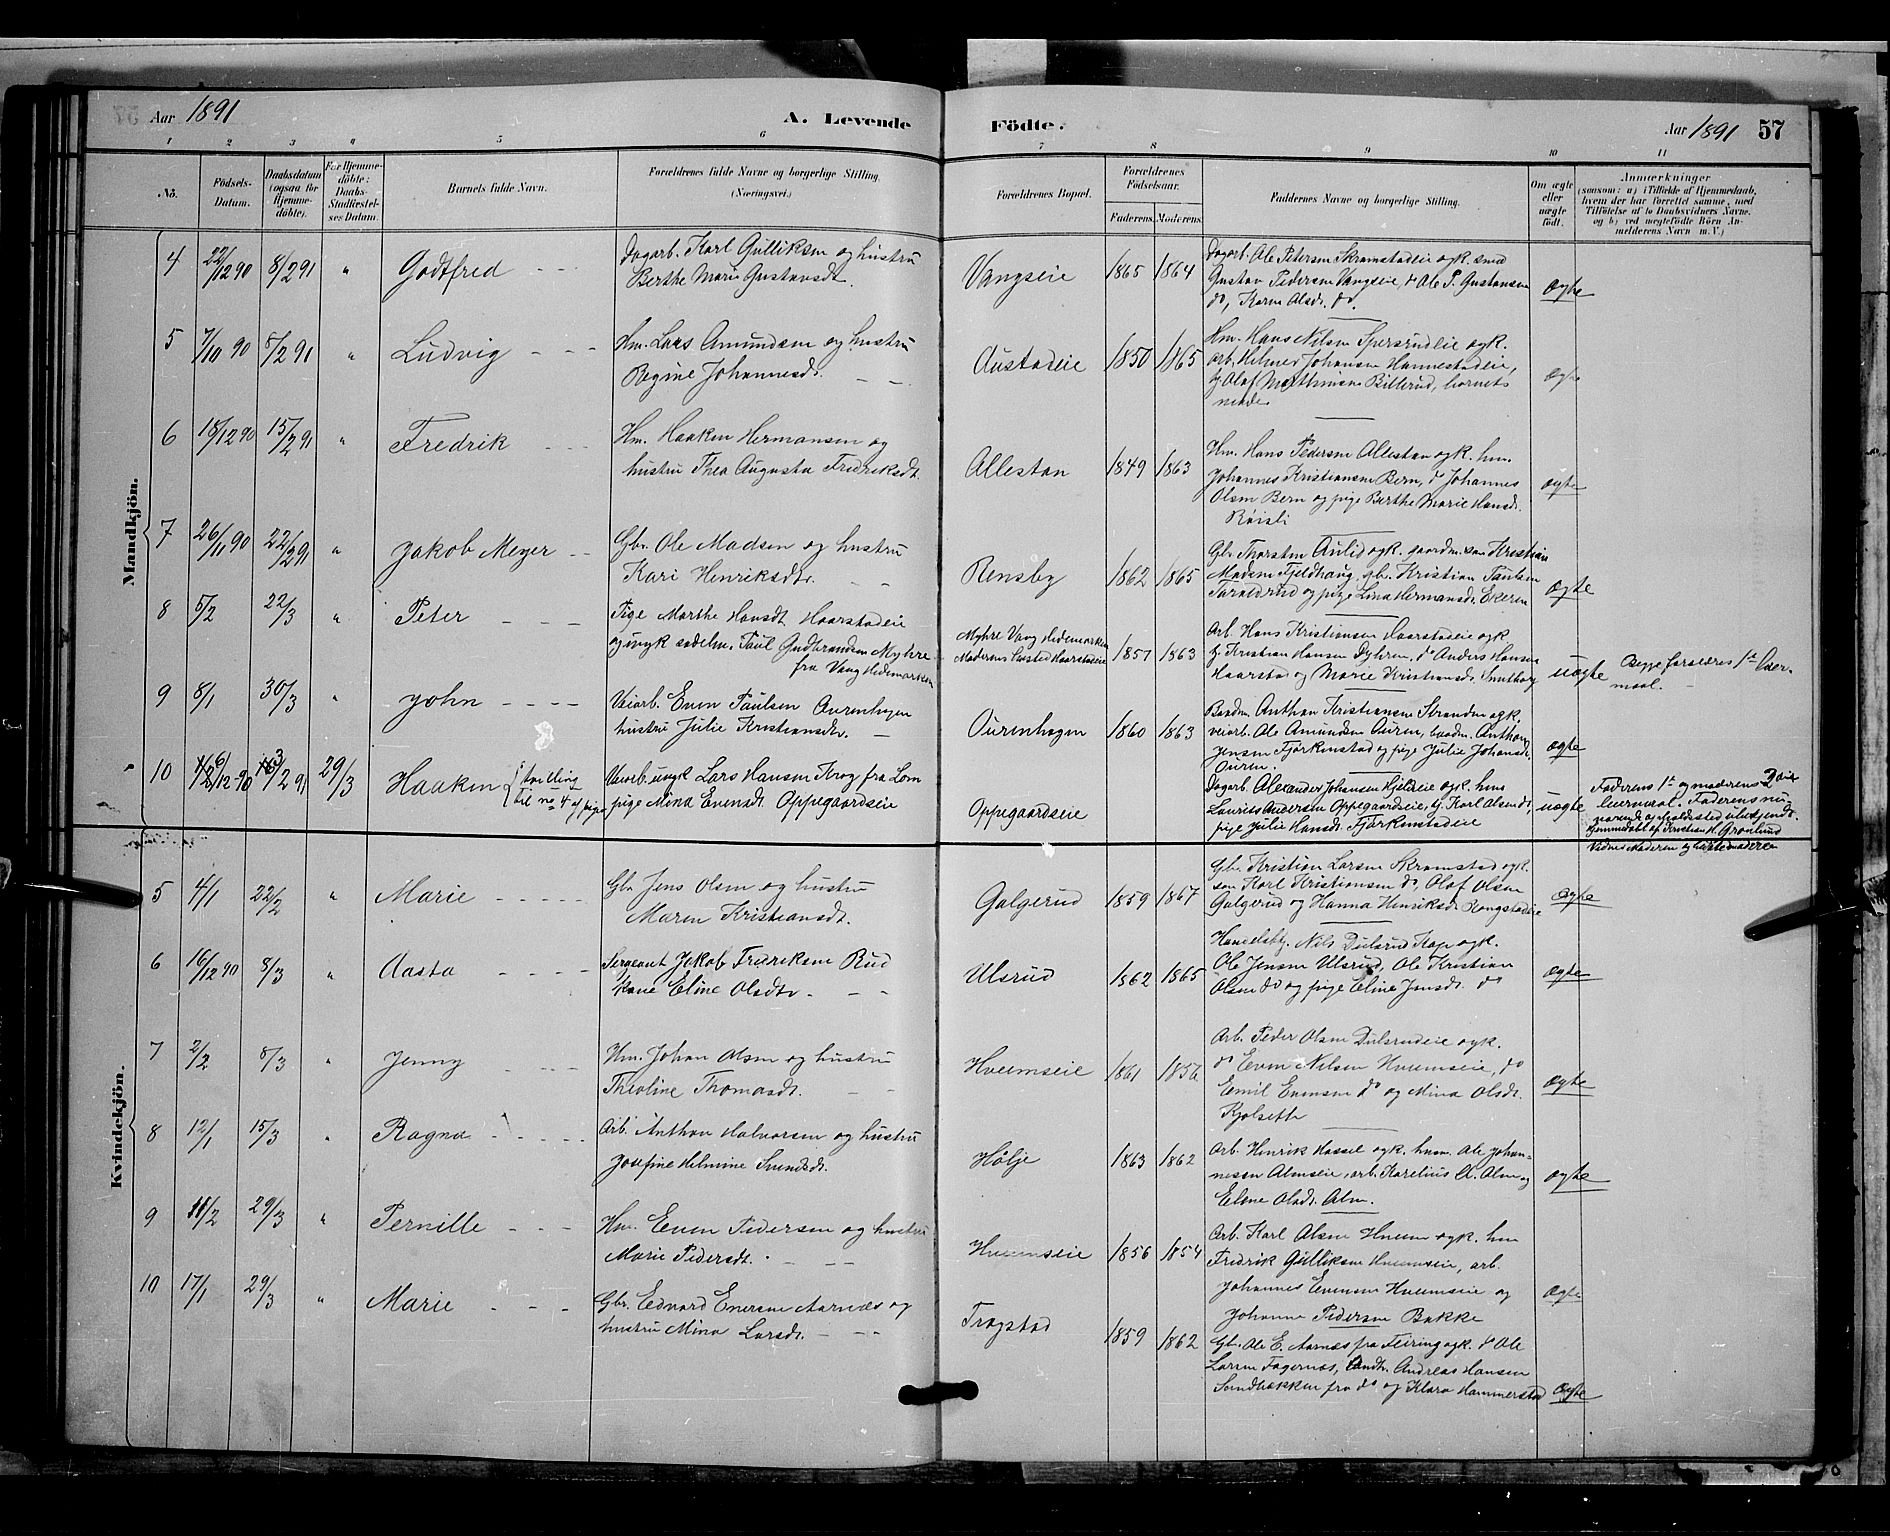 Aar 1891
A. Levende
Födte.
Aar 1891 57
1 2 3 4 5 6 7 8 9 10 11
No.
Födsels-
Datum.
Daabsdatum
(ogsaa for
Hjemme-
döbte).
For Hjemme-
döbte:
Daabs-
Stadfæstel-
ses Datum.
Barnets fulde Navn.
Forældrenes fulde Navne og borgerlige Stilling.
(Næringsvei.)
Forældrenes Bopæl.
Forældrenes
Födselsaar.
Faderens. Moderens.
Faddernes Navne og borgerlige Stilling.
Om ægte
eller
uægte
födt.
Anmærkninger
(saasom: a) i Tilfælde af Hjemmedaab,
hvem der har forrettet samme, med
Tilföielse af to Daabsvidners Navne,
og b) ved uægtefödte Börn An-
melderens Navn m. V.)
Mandkjön.
4 22/12 90 8/2 91 " Godtfred
Dagarb. Karl Gulliksen og hustru
Berthe Marie Gustavsdt.
Vangseie 1865 1864
Dagarb. Ole Petersen Skramstadeie ogk. smed
Gustav Pedersen Vangseie, do Ole P. Gustavsen
do, Karen Olsdt. do.
ægte
5 7/10 90 8/2 91 " Ludvig
Hm. Lars Amundsen og hustru
Regine Johannesdt.
Austadeie 1850 1865
Hm. Hans Nilsen Spersrudeie ogk.
arb. Helmer Johansen Hannestadeie,
tj. Olaf Mathisen Billerud, barnets
moder
ægte
6 18/12 90 15/2 91 " Fredrik
Hm. Haaken Hermansen og
hustru Thea Augusta Fredriksdt.
Allestan 1849 1863
Hm. Hans Pedersen Allestan ogk. hm.
Johannes Kristiansen Bern, do Johannes
Olsen Bern og pige Berthe Marie Hansdt.
Röisli
ægte
7 26/11 90 22/2 91 " Jakob Meyer
Gbr. Ole Madsen og hustru
Kari Henriksdtr.
Rensby 1862 1865
Gbr. Thorsten Aulid ogk. gaardm. søn Kristian
Madsen Fjeldhaug, gbr. Kristian Paulsen
Taraldrud og pige Lina Hermansdt. Ekeren
ægte
8 5/2 22/3 " Peter
Pige Marthe Hansdt. Haarstadeie
og ungk. sadelm. Paul Gudbrandsen Myhre
fra Vang Hedemarken
Myhre Vang Hedemarken
Moderens Bosted Haarstadeie 1857 1863
Arb. Hans Kristiansen Haarstadeie ogk.
tj. Kristian Hansen Dyhren, do Anders Hansen
Haarstad og Marie Kristiansdt.
uægte
Begge forældres 1ste Leier-
maal.
9 8/1 30/3 " John
Veiarb. Even Paulsen Ourenhagen
hustru Julie Kristiansdt.
Ourenhagen 1860 1863
Baadm. Anthon Kristiansen Stranden ogk.
veiarb. Ole Amundsen Ouren, baadm. Anthon
Jensen Fjørkenstad og pige Julie Johansdt.
Ouren.
ægte
10 6/12 90 3/2 91 29/3 Haaken (tvilling
til no 4 af piger
Veiarb. ungk. Lars Hansen Krog fra Lom
pige Mina Evensdt. Oppegaardseie
Oppegaardseie
Dagarb. Alexander Johansen Hjeldeie ogk. hm.
Laurits Andersen Oppegaardseie, tj. Karl Olsen do,
pige Julie Hansdt. Fjørkenstadeie
uægte
Faderens 1ste og moderens 2det
leiermaal. Faderens nu-
værende opholdssted ubekjendt.
Hjemmedøbt af Kristian H. Grønlund
Vidner Moderen og bestemoderen
Kvindekjön.
5 4/1 22/2 " Marie
Gbr. Jens Olsen og hustru
Maren Kristiansdt.
Galgerud 1859 1867
Gbr. Kristian Larsen Skramstad ogk.
søn Karl Kristiansen do, Olaf Olsen
Galgerud og Hanna Henriksdt. Kongstadeie
ægte
6 16/12 90 8/3 " Aasta
Sergeant Jakob Fredriksen Rud
kone Eline Olsdtr.
Ulsrud 1862 1865
Handelsbtj. Nils Dulsrud Kap ogk.
Ole Jensen Ulsrud, Ole Kristian
Olsen do og pige Eline Jensdt. do
ægte
7 2/2 8/3 " Jenny
Hm. Johan Olsen og hustru
Theoline Thomasdt.
Hveemseie 1861 1856
Arb. Peder Olsen Dulsrudeie ogk.
do Even Nilsen Hveemseie, do
Emil Evensen do og Mina Olsdt.
Kjølsette
ægte
8 12/1 15/3 " Ragna
Arb. Anthon Halvorsen og hustru
Josefine Helmine Svendsdt.
Hölje 1863 1862
Arb. Henrik Hassel ogk. husm. Ole Johan-
nessen Almseie, arb. Karelius A. Alm og
Elene Olsdt. Alm.
ægte
9 11/2 29/3 " Pernille
Hm. Even Pedersen og hustru
Marie Pedersdt.
Hveemseie 1856 1854
Arb. Karl Olsen Hveem ogk. hm
Fredrik Gulliksen Hveemseie, arb.
Johannes Evensen Hveemseie og
Johanne Pedersen Bakke
ægte
10 17/1 29/3 " Marie
Gbr. Edvard Enersen Aarnæs og
hustru Mina Larsdt.
Trogstad 1859 1862
Gbr. Ole E. Aarnæs fra Feiring ogk. do Ole
Larsen Fagernæs, landh. Andreas Hansen
Sandbakken fra do og Klara Hammerstad
ægte